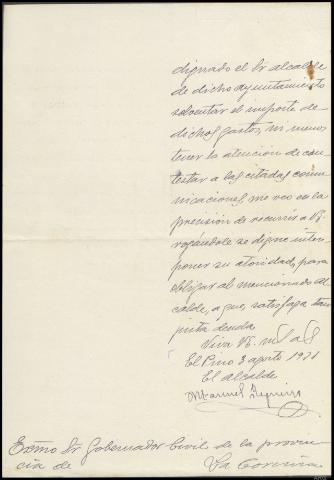 dignado el Sr alcalde
de dicho ayuntamiento
solventar el importe de
dichos gastos, ni menos
tener la atención de con
testar a las citadas comu
nicaciones, me veo en la
precisión de recurrir a V.
rogándole se digne inter-
poner su atoridad, para
obligar al mencionado al
calde, a que, satisfaga tan
justa deuda
Viva V. m a
El Pino 3 agosto 1921
El alcalde
Manuel
Exmo Sr Gobernador Civil de la provin-
cia de La Coruña